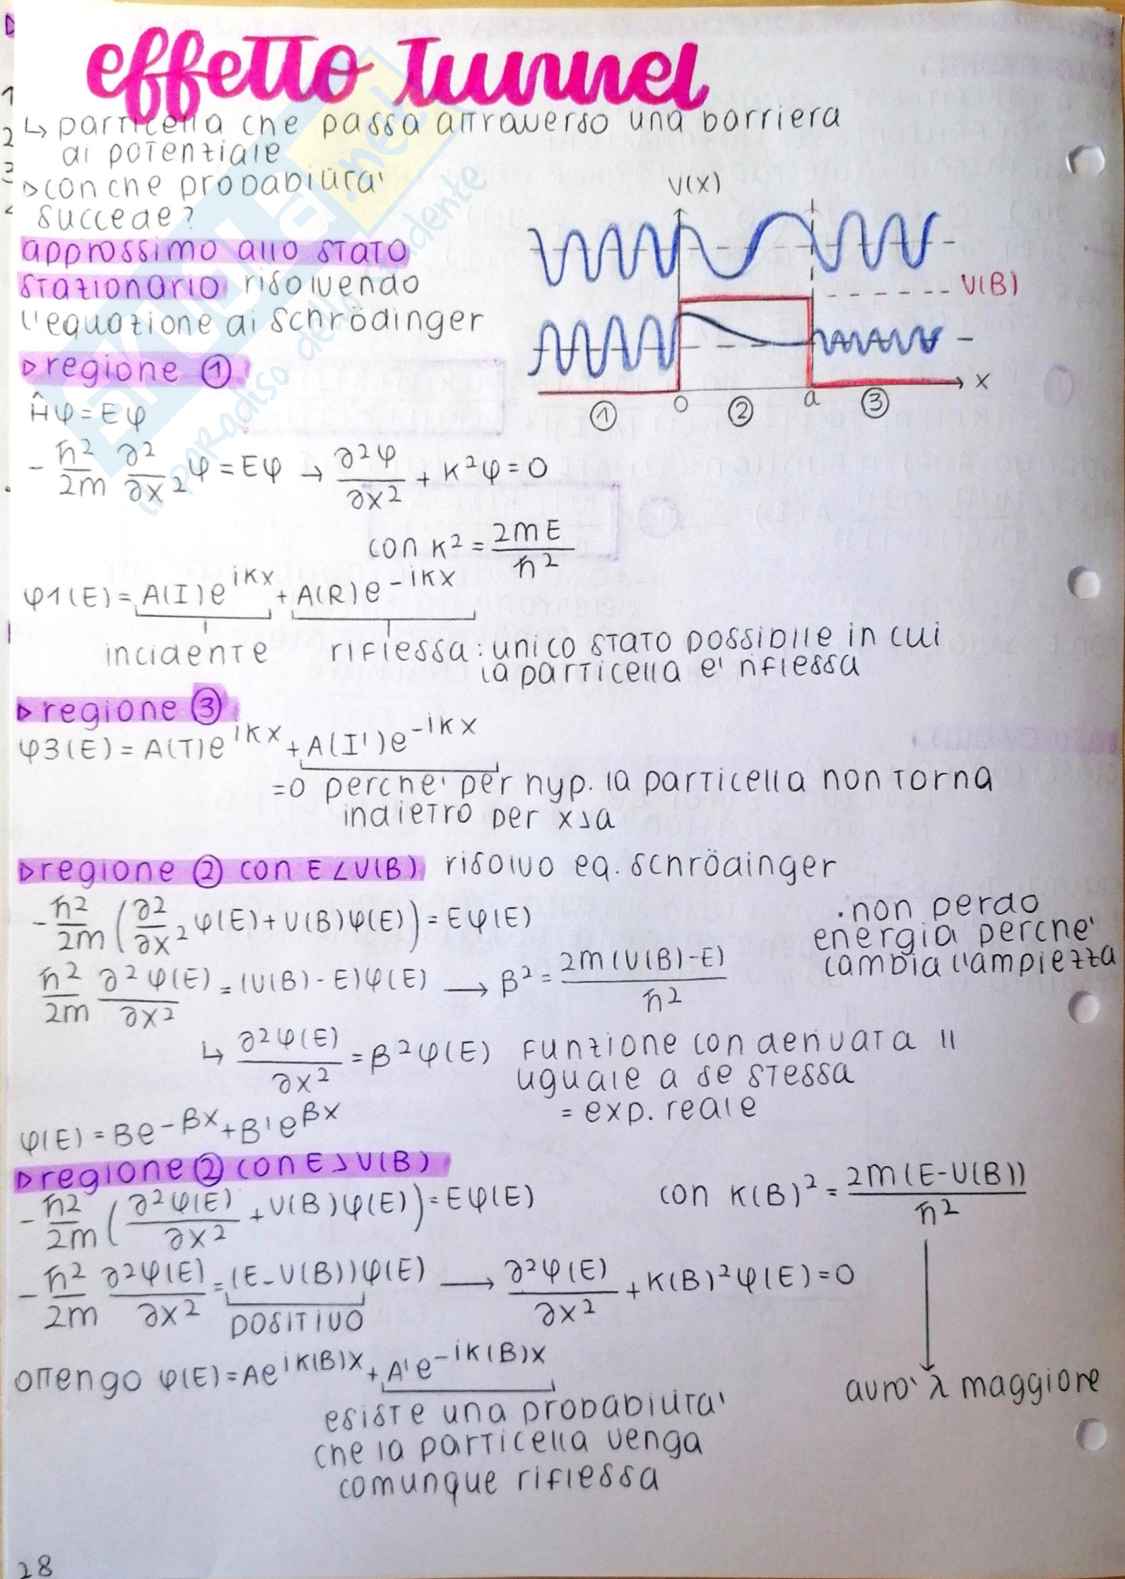 effetto tunnel
↳ particella che passa attraverso una barriera
di potenziale
▷ con che probabilità
succede?
approssimo allo stato
stazionario risolvendo
l'equazione di Schrödinger
V(x)
V(B)
x
① 0 ② a ③
▷ regione ①
Ĥφ = Eφ
- ℏ²/2m ∂²/∂x² φ = Eφ → ∂²φ/∂x² + K²φ = 0
con K² = 2mE/ℏ²
φ1(E) = A(I)e^{iKx} + A(R)e^{-iKx}
incidente riflessa: unico stato possibile in cui
la particella e' riflessa
▷ regione ③
φ3(E) = A(T)e^{iKx} + A(I')e^{-iKx}
=0 perche' per hyp. la particella non torna
indietro per x>a
▷ regione ② con E<V(B) risolvo eq. Schrödinger
- ℏ²/2m (∂²/∂x² φ(E) + V(B)φ(E)) = Eφ(E)
· non perdo
energia perche'
cambia l'ampiezza
ℏ²/2m ∂²φ(E)/∂x² = (V(B) - E)φ(E) → β² = 2m(V(B)-E)/ℏ²
↳ ∂²φ(E)/∂x² = β²φ(E) funzione con derivata II
uguale a se stessa
= exp. reale
φ(E) = Be^{-βx} + B'e^{βx}
▷ regione ② con E>V(B)
- ℏ²/2m (∂²φ(E)/∂x² + V(B)φ(E)) = Eφ(E) con K(B)² = 2m(E-V(B))/ℏ²
- ℏ²/2m ∂²φ(E)/∂x² = (E-V(B))φ(E) → ∂²φ(E)/∂x² + K(B)²φ(E) = 0
positivo
ottengo φ(E) = Ae^{iK(B)x} + A'e^{-iK(B)x}
avro' λ maggiore
esiste una probabilita'
che la particella venga
comunque riflessa
28